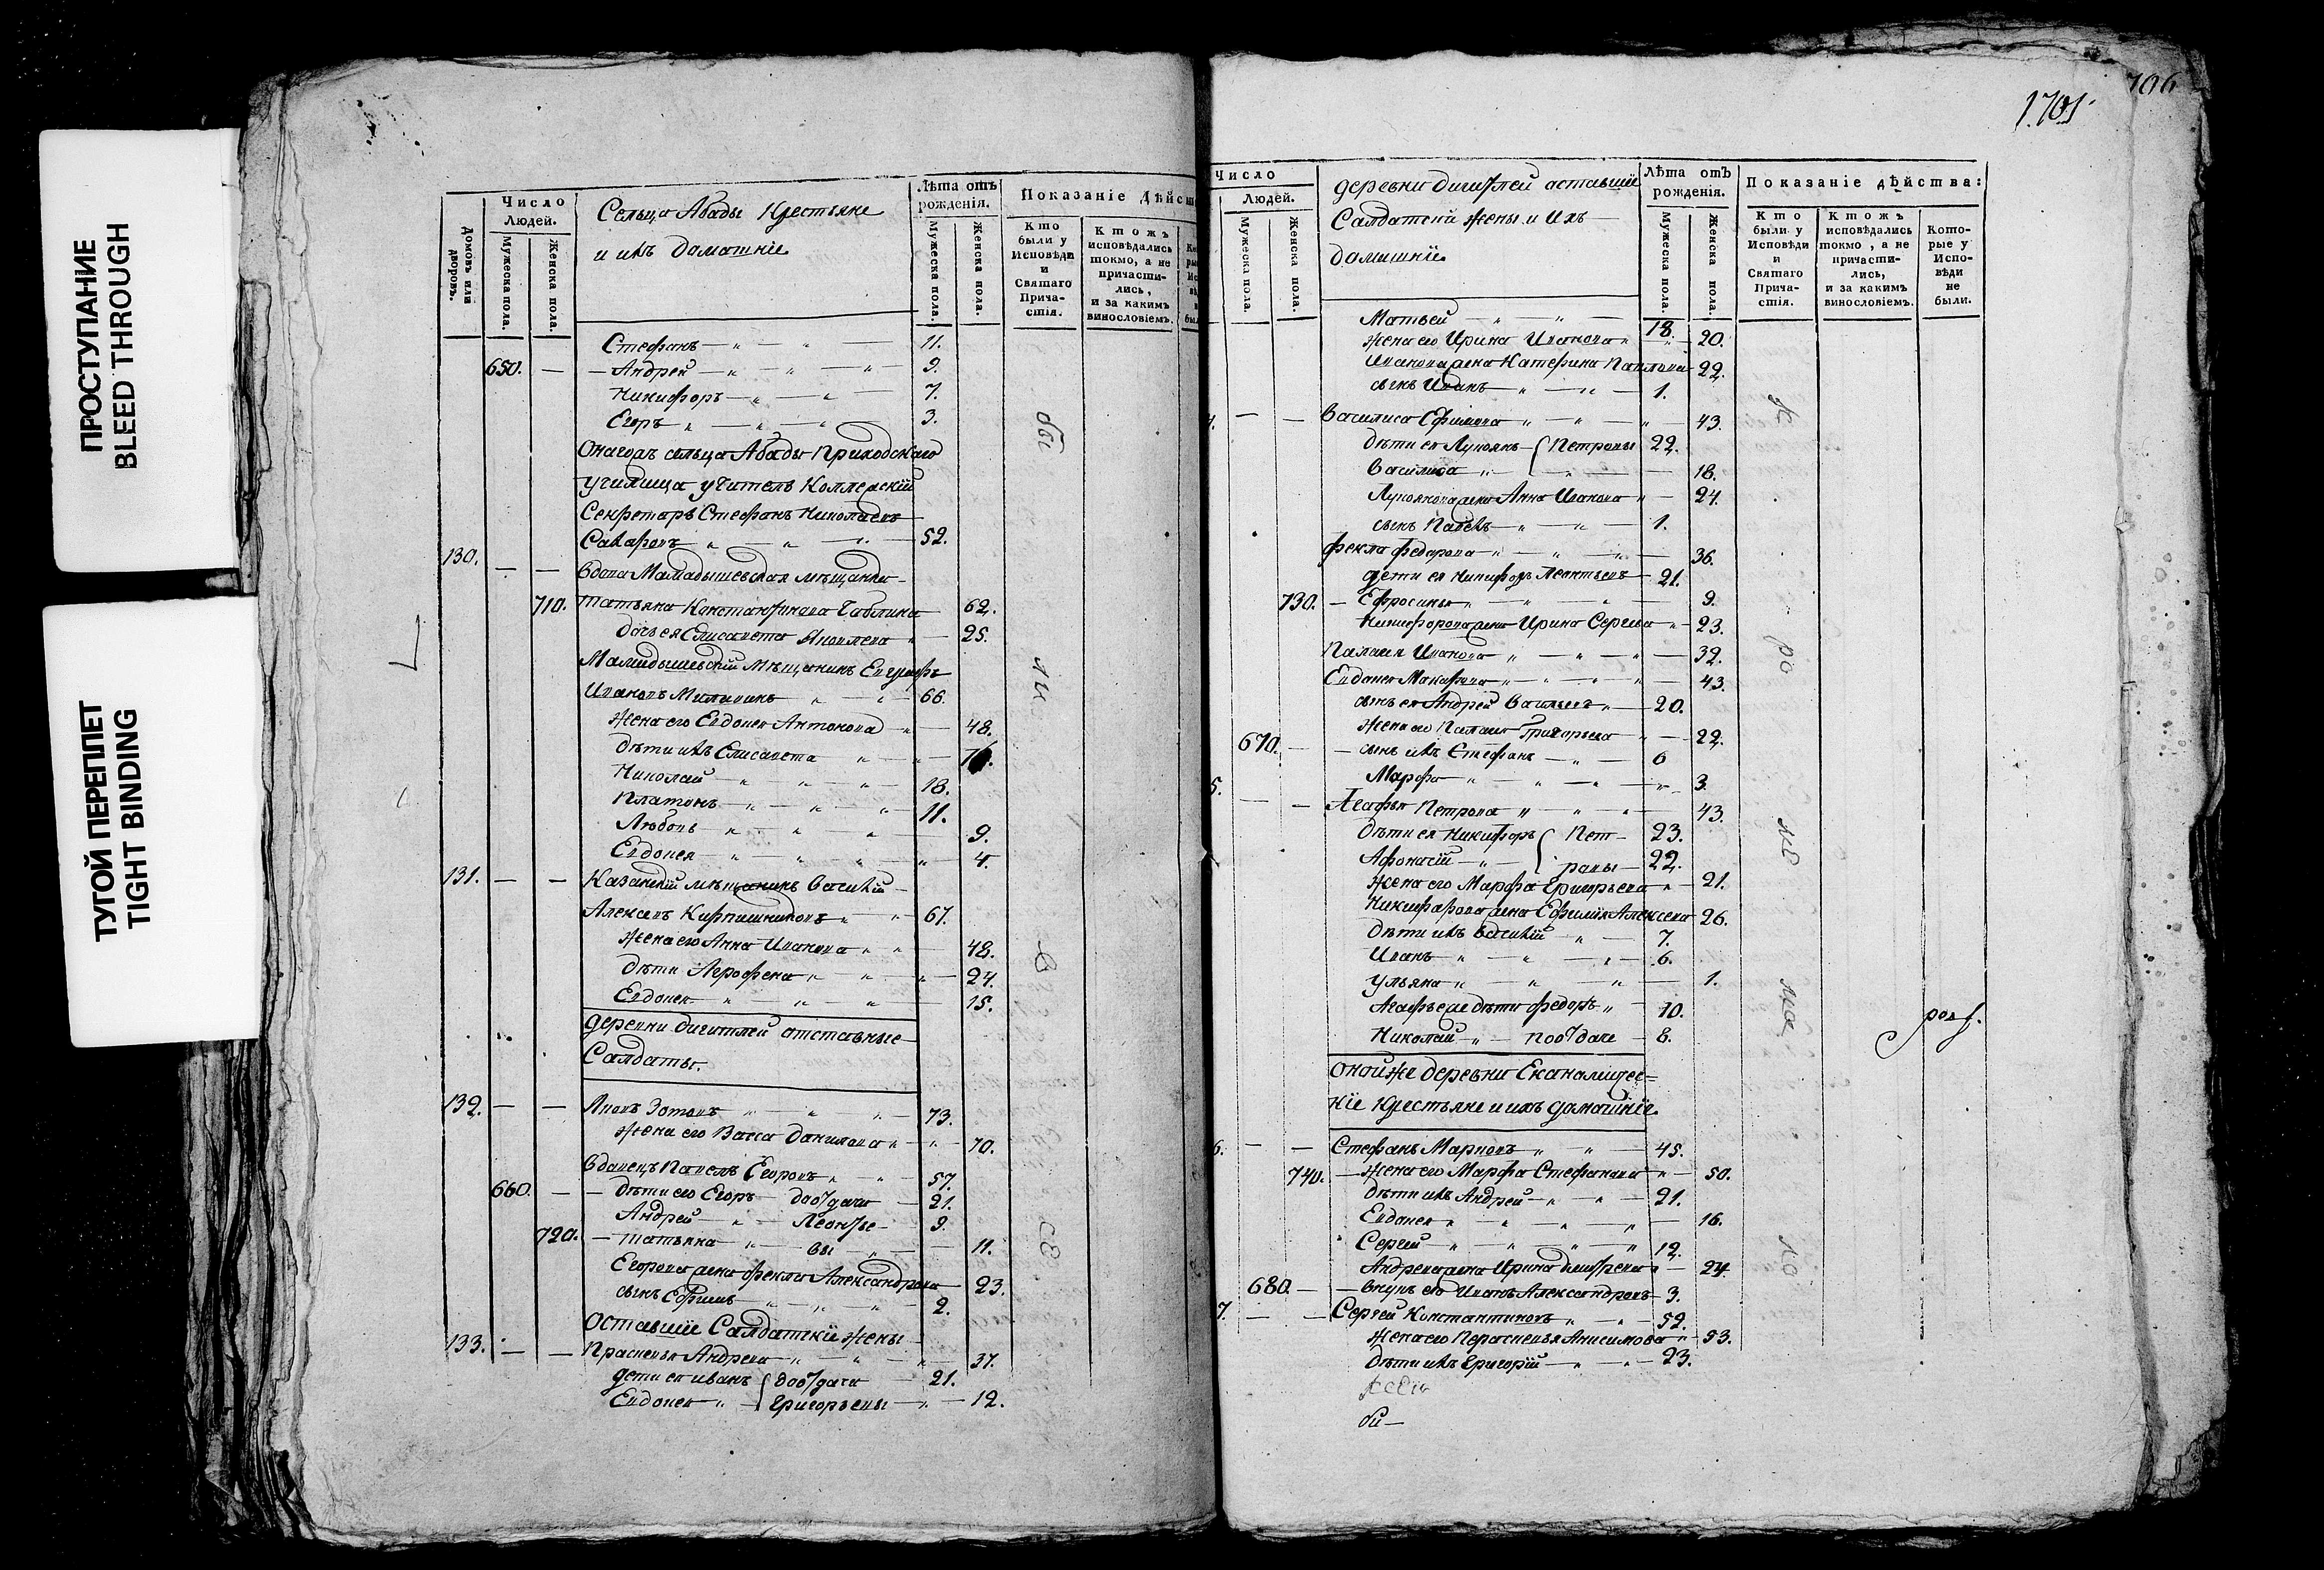 ПРОСТУПАНИЕ
BLEED THROUGH
ТУГОЙ ПЕРЕПЛЕТ
TIGHT BINDING
Домовъ или дворовъ.
Число
Людей.
Мужеска пола.
Женска пола.
Сельца Абады Крестьяне
и ихъ домашніе
Лѣта отъ
рожденія.
Мужеска пола.
Женска пола.
Показаніе Дѣйст
Кто
были у
Исповѣди
и
Святаго
Прича-
стія.
Ктожъ
исповѣдались
токмо, а не
причасти-
лись,
и за какимъ
винословіемъ.
Стефанъ 11.
650. Андрей 9.
Никифоръ 7.
Егоръ 3.
Онагожъ сельца Абады Приходскаго
училища учитель Коллежскій
Секретарь Стефанъ Николаевъ
52.
130. вдова Мамадышевская мѣщанка
710. Татьяна Константинова 62.
дочь ея Елисавета Яковлева 25.
Мамадышевскій мѣщанинъ Евграфъ
Ивановъ 66.
жена его Евдокея Антонова 48.
дѣти ихъ Елисавета
Николай 18.
Платонъ 11.
Любовь 9.
Евдокея 4.
131. Казанскій мѣщанинъ Василій
Алексевъ Кирпишниковъ 67.
жена его Анна Иванова 48.
дѣти Агрофена 24.
Евдокея 15.
деревни Дигитлей отставные
Салдаты.
132. Яковъ Зотовъ 73.
жена его Васса Данилова 70.
вдовецъ Павелъ Егоровъ 57.
660. дѣти его Егоръ 21.
Андрей Леонтье- 9.
720. Татьяна вы 11.
Егорова жена Фекла Александрова 23.
сынъ Ефимъ 2.
Оставшіе Салдатскіе жены
133. Прасковья Андрева 37.
дети ея Иванъ 21.
Евдокея Григорьевы 12.
бы
ли
В
СЕ
1.701
706
Число
Людей.
Мужеска пола.
Женска пола.
деревни Дигитлей аставшіе
Салдатскіе жены и Ихъ
домашніе
Лѣта отъ
рожденія.
Мужеска пола.
Женска пола.
Показаніе дѣйства:
Кто
были у
Исповѣди
и
Святаго
Прича-
стія.
Ктожъ
исповѣдались
токмо, а не
причасти-
лись,
и за какимъ
винословіемъ.
Кото-
рые у
Испо-
вѣди
не
были.
Матвей 18.
жена его Ирина Иванова 20.
Иванова жена Катерина Павлова 22.
сынъ Иванъ 1.
4. Василиса Ефимова 43.
дѣти ея Лукоянъ Петровы 22.
Василиса 18.
Лукоянова жена Анна Иванова 24.
сынъ Павелъ 1.
Фекла Федарова 36.
дети ея Никифоръ Леонтьевъ 21.
730. Ефросинья 9.
Никифорова жена Ирина Сергева 23.
Палагея Иванова 32.
Евдокея Макарова 43.
сынъ ея Андрей Васильевъ 20.
жена его Палагея Григорьева 22.
670. сынъ ихъ Стефанъ 6
Марфа 3.
5. Агафья Петрова 43.
дѣти ея Никифоръ Пет- 23.
Афонасій ровы 22.
жена его Марфа Григорьева 21.
Никифарова жена Ефимія Алексева 26.
дѣти ихъ Василій 7.
Иванъ 6.
Ульяна 1.
Агафьеже дѣти Федоръ 10.
Николай 8.
онойже деревни Еканамичес-
кіе крестьяне и ихъ домашніе
6. Стефанъ Марковъ 45.
740. жена его Марфа Стефанова 50.
дѣти ихъ Андрей 21.
Евдокея 16.
Сергей 12.
Андрева жена Ирина Дмитрева 24
680. внукъ его Иванъ Александровъ 3.
7. Сергей Константиновъ 52.
жена его Парасковья Анисимова 53.
дѣти ихъ Григорій 23.